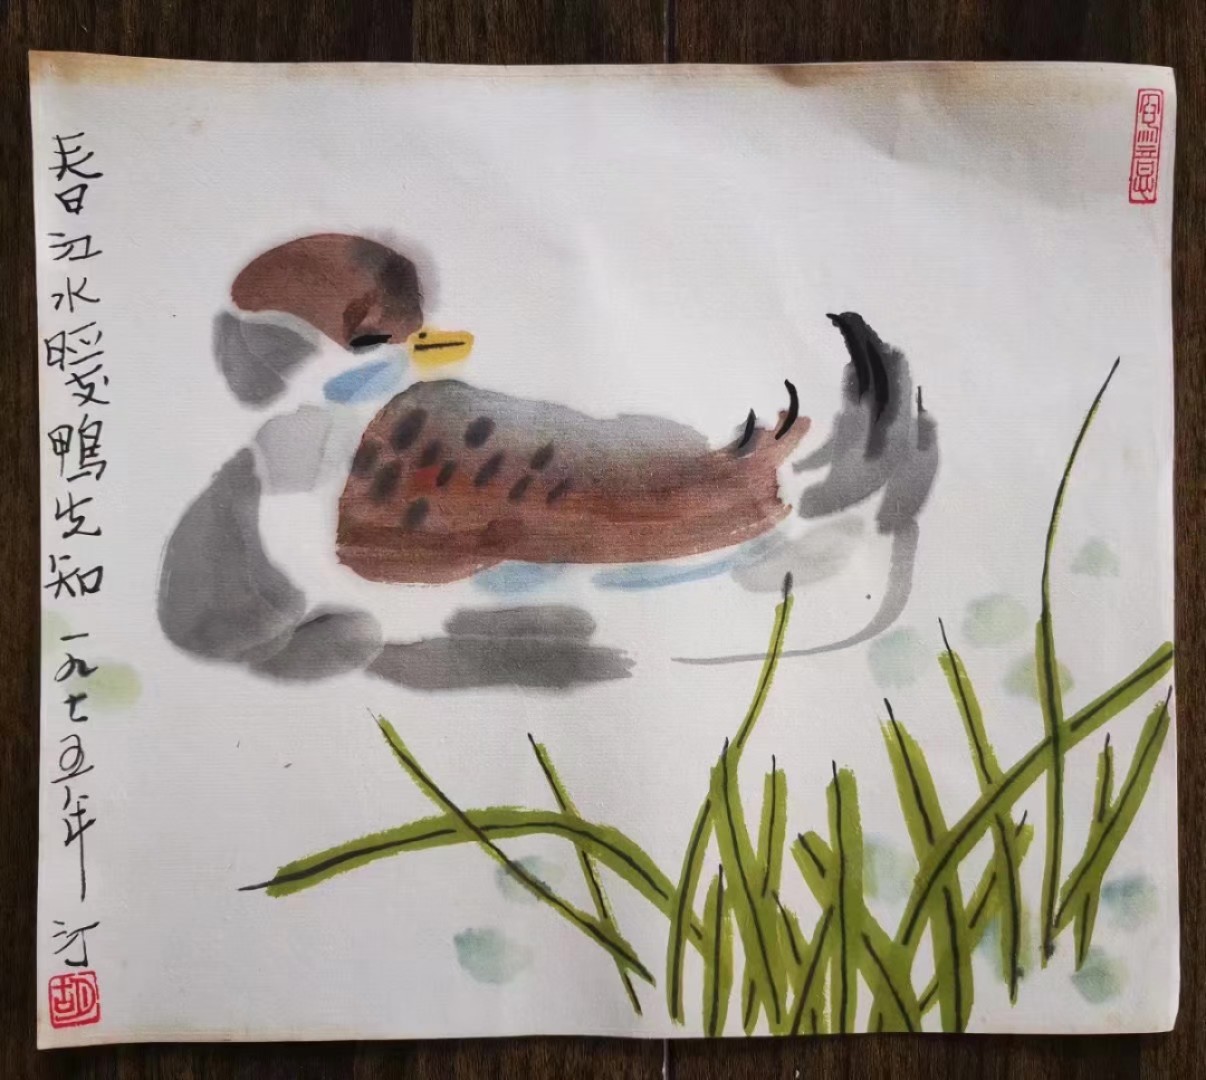 春江水暖鴨先知 一九七五年 汀
胡